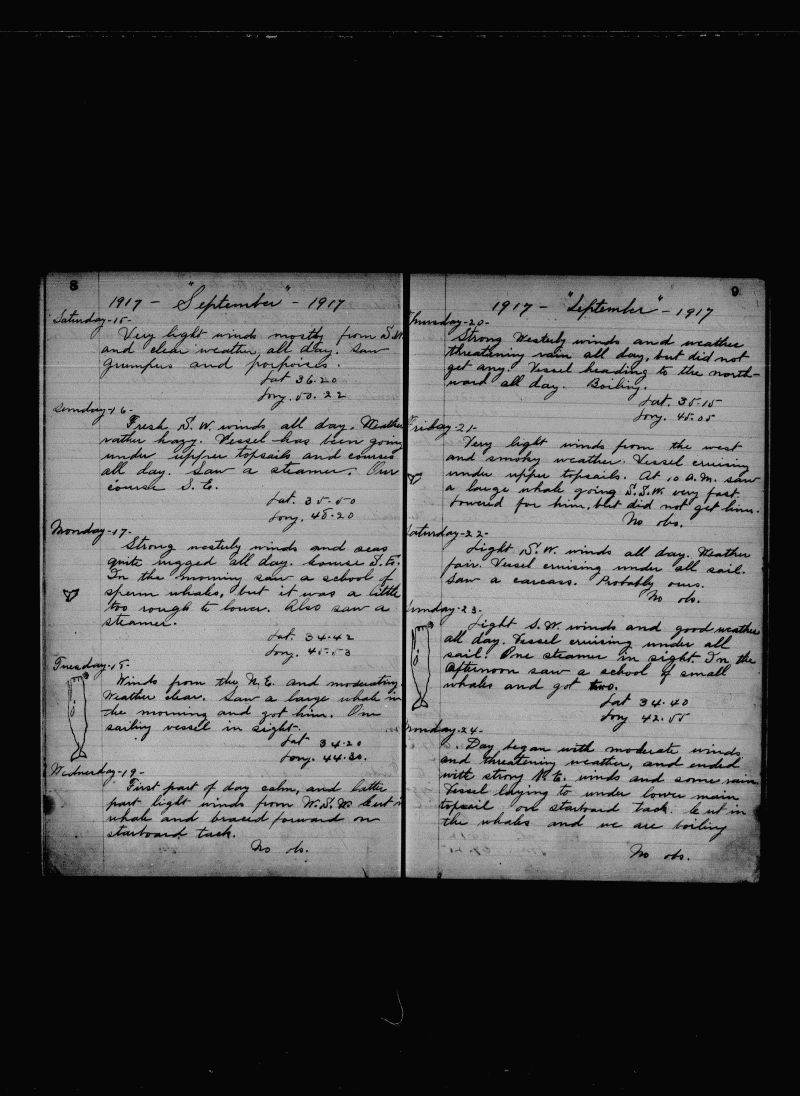 8
1917 - "September" - 1917
Saturday-15-
Very light winds mostly from S.W.
and clear weather all day. Saw
Grumpers and porpoises.
Lat 36.20
Long. 50.22
Sunday-16-
Fresh S.W. winds all day. Weather
rather hazy. Vessel has been going
under upper topsails and courses
all day. Saw a steamer. Our
course S.E.
Lat. 35.50
Long. 48.20
Monday-17-
Strong westerly winds and seas
quite rugged all day. Course S.E.
In the morning saw a school of
sperm whales, but it was a little
too rough to lower. Also saw a
steamer.
Lat. 34.42
Long. 45.53
Tuesday-18-
Winds from the N.E. and moderating.
Weather clear. Saw a large whale in
the morning and got him. One
sailing vessel in sight.
Lat 34.20
Long. 44.30.
Wednesday-19-
First part of day calm, and latter
part light winds from W.S.W. Cut in
whale and braced forward on
starboard tack.
No ob.
9
1917 - "September" - 1917
Thursday-20-
Strong Westerly winds and weather
threatening rain all day, but did not
get any. Vessel heading to the north-
ward all day. Boiling.
Lat. 35.15
Long. 45.05
Friday-21-
Very light winds from the west
and smoky weather. Vessel cruising
under upper topsails. At 10 A.M. saw
a large whale going S.S.W. very fast.
Lowered for him, but did not get him.
No obs.
Saturday-22-
Light S.W. winds all day. Weather
fair. Vessel cruising under all sail.
Saw a carcass. Probably ours.
No ob.
Sunday-23-
Light S.W. winds and good weather
all day. Vessel cruising under all
sail. One steamer in sight. In the
afternoon saw a school of small
whales and got two.
Lat 34.40
Long 42.55
Monday-24-
Day began with moderate winds
and threatening weather, and ended
with strong N.E. winds and some rain
Vessel laying to under lower main
topsail on starboard tack. Cut in
the whales and we are boiling
No obs.